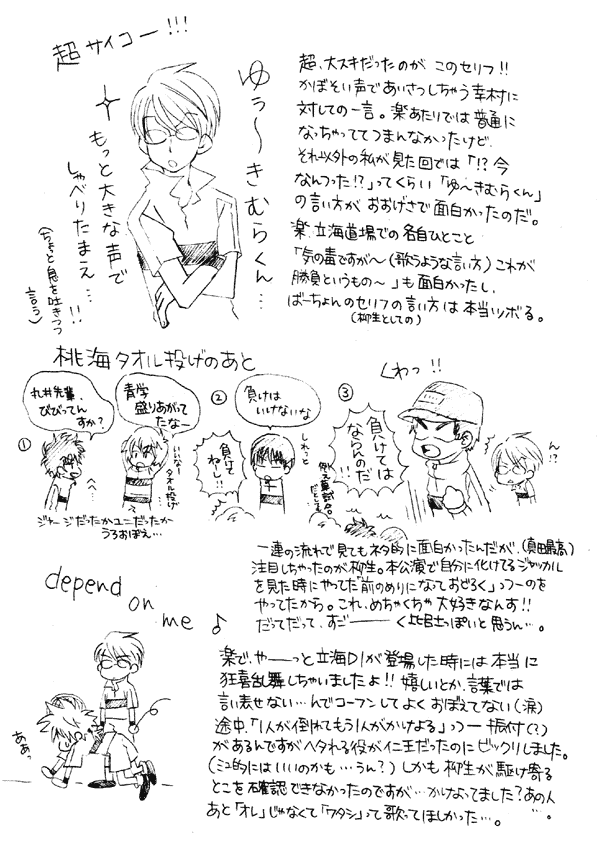 超サイコー!!!
ゆぅ〜きむらくん…
もっと大きな声で
しゃべりたまえ…!!
(ちょっと息を吐きつつ
言う)
超、大スキだったのが このセリフ!!
かぼそい声であいさつしちゃう幸村に
対しての一言。楽あたりでは普通に
なっちゃっててつまんなかったけど、
それ以外の私が見た回では「!?今
なんつった!?」ってくらい「ゆ〜きむらくん」
の言い方が おおげさで面白かったのだ。
楽、立海道場での各自ひとこと
「気の毒ですが〜(歌うような言い方)これが
勝負というもの〜」も面白かったし、
ばーちょんのセリフの言い方は本当ツボる。
(柳生としての)
桃海タオル投げのあと
くわっ!!
丸井先輩、
びびってん
すか?
青学
盛りあがって
たなー
②
負けは
いけないな
③
負けては
ならんのだ!!
ん!?
①
へへ…
いいな タオル投げ
負けて
ねーし!!
しれっと
ジャージだったかユニだったか
うろおぼえ…
一連の流れで見てもネタ的に面白かったんだが、(真田最高)
注目しちゃったのが柳生。本公演で自分に化けてるジャッカル
を見た時にやってた"前のめりになっておどろく"っつーのを
やってたから。これ、めちゃくちゃ 大好きなんす!!
だってだって、すごーーーく比呂士っぽいと思うん…。
depend
on
me ♪
ああっ
楽で、やーっと立海D1が登場した時には本当に
狂喜乱舞しちゃいましたよ!!嬉しいとか、言葉では
言い表せない…んでコーフンしてよくおぼえてない(涙)
途中、「1人が倒れてもう1人がかけよる」っつー振付(?)
があるんですがヘタれる役が仁王だったのにビックリしました。
(ミュ的にはいいのかも…うん?)しかも柳生が駆け寄る
とこを確認できなかったのですが…かけよってました?あの人…。
あと「オレ」じゃなくて「ワタシ」って歌ってほしかった…。